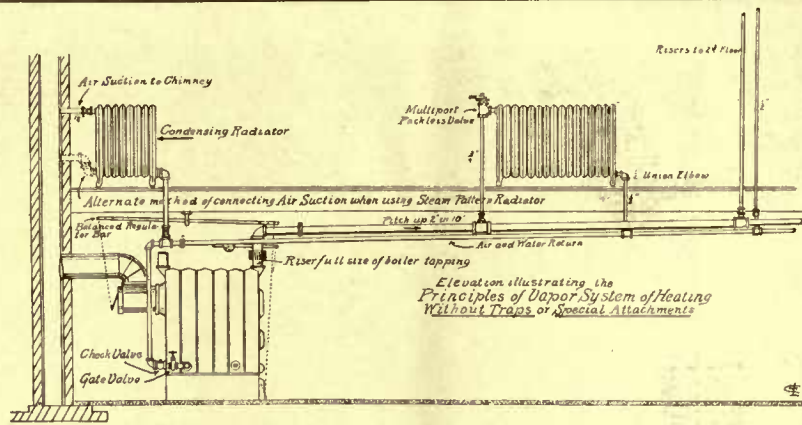 Risers to 2d Floor
Air Suction to Chimney
Multiport
Packless Valve
Condensing Radiator
Union Elbow
Alternate method of connecting Air Suction when using Steam Pattern Radiator
Balanced Regula-
tor Bar
Pitch up ½" in 10'
Air and Water Return
Riser full size of boiler tapping
Elevation illustrating the
Principles of Vapor System of Heating
Without Traps or Special Attachments
Check Valve
Gate Valve